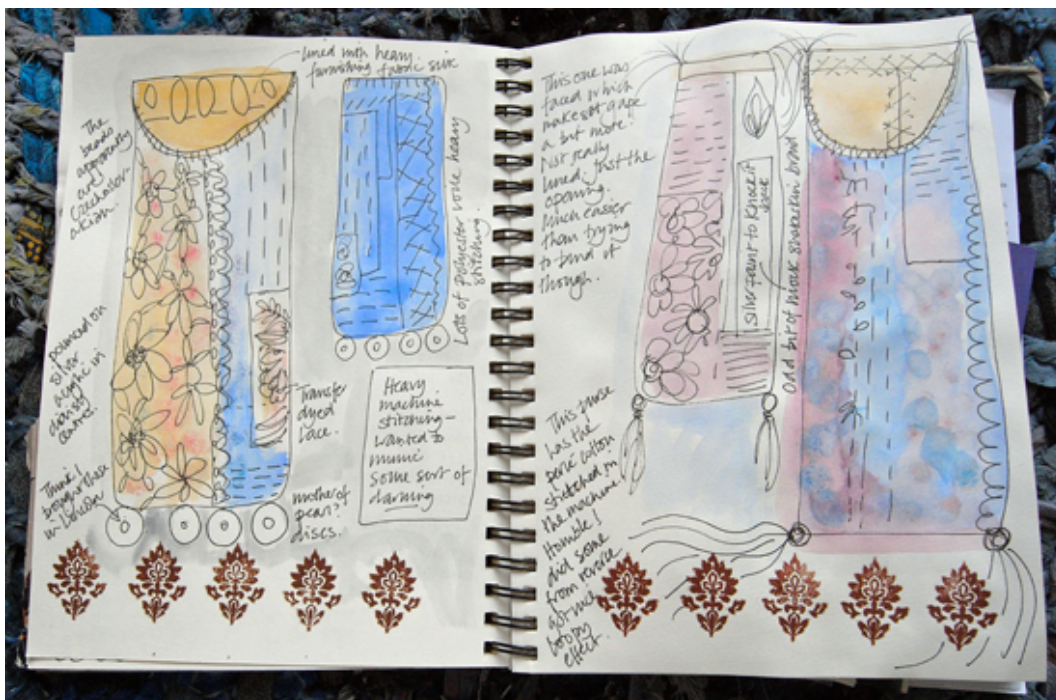 lined with heavy
furnishing fabric silk
The
beads
apparently
are
Czechoslov-
akian.
Lots of polyester voile heavy
stitching.
pounced on
silver
alight in
daisy
centres.
Transfer
dyed
lace.
Heavy
machine
stitching –
wanted to
mimic
some sort of
darning
Think I
bought these
in London
mother of
pearl?
discs.
This one was
faced which
makes it gape
a bit more?
Not really
lined just the
opening.
Much easier
than trying
to bind it
though.
silver paint to knock it
back
odd bit of block shareskin braid
This purse
has the
perlé cotton
stitched on
the machine.
Horrible!
did some
from reverse
got nice
loopy
effect.